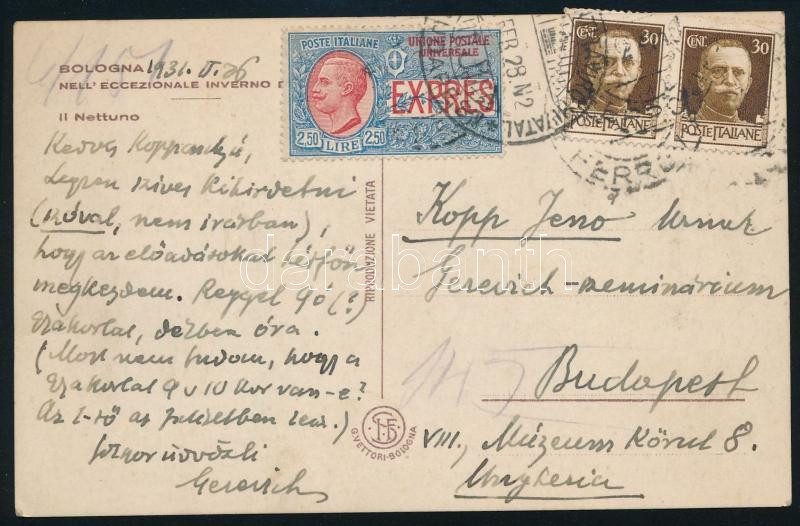 BOLOGNA 1931. II. 26
NELL'ECCEZIONALE INVERNO
Il Nettuno
Kedves
Legyen szíves kihirdetni
(szóval, nem írásban),
hogy az előadásokat hétfőn
megkezdem. Reggel 9ó (?)
gyakorlat, délben óra.
(Most nem tudom, hogy a
gyakorlat 9 v 10 kor van-e?
Az I-ső az
üdvözli
Gerevich
POSTE ITALIANE
UNIONE POSTALE
UNIVERSALE
EXPRES
2,50 LIRE 2,50
CENT. 30
POSTE ITALIANE
CENT. 30
POSTE ITALIANE
FEB 28
RIPRODUZIONE VIETATA
G. VETTORI - BOLOGNA
Kopp Jenő úrnak
Gerevich-szeminárium
Budapest
VIII., Múzeum Körút 8.
Ungheria
darabanth